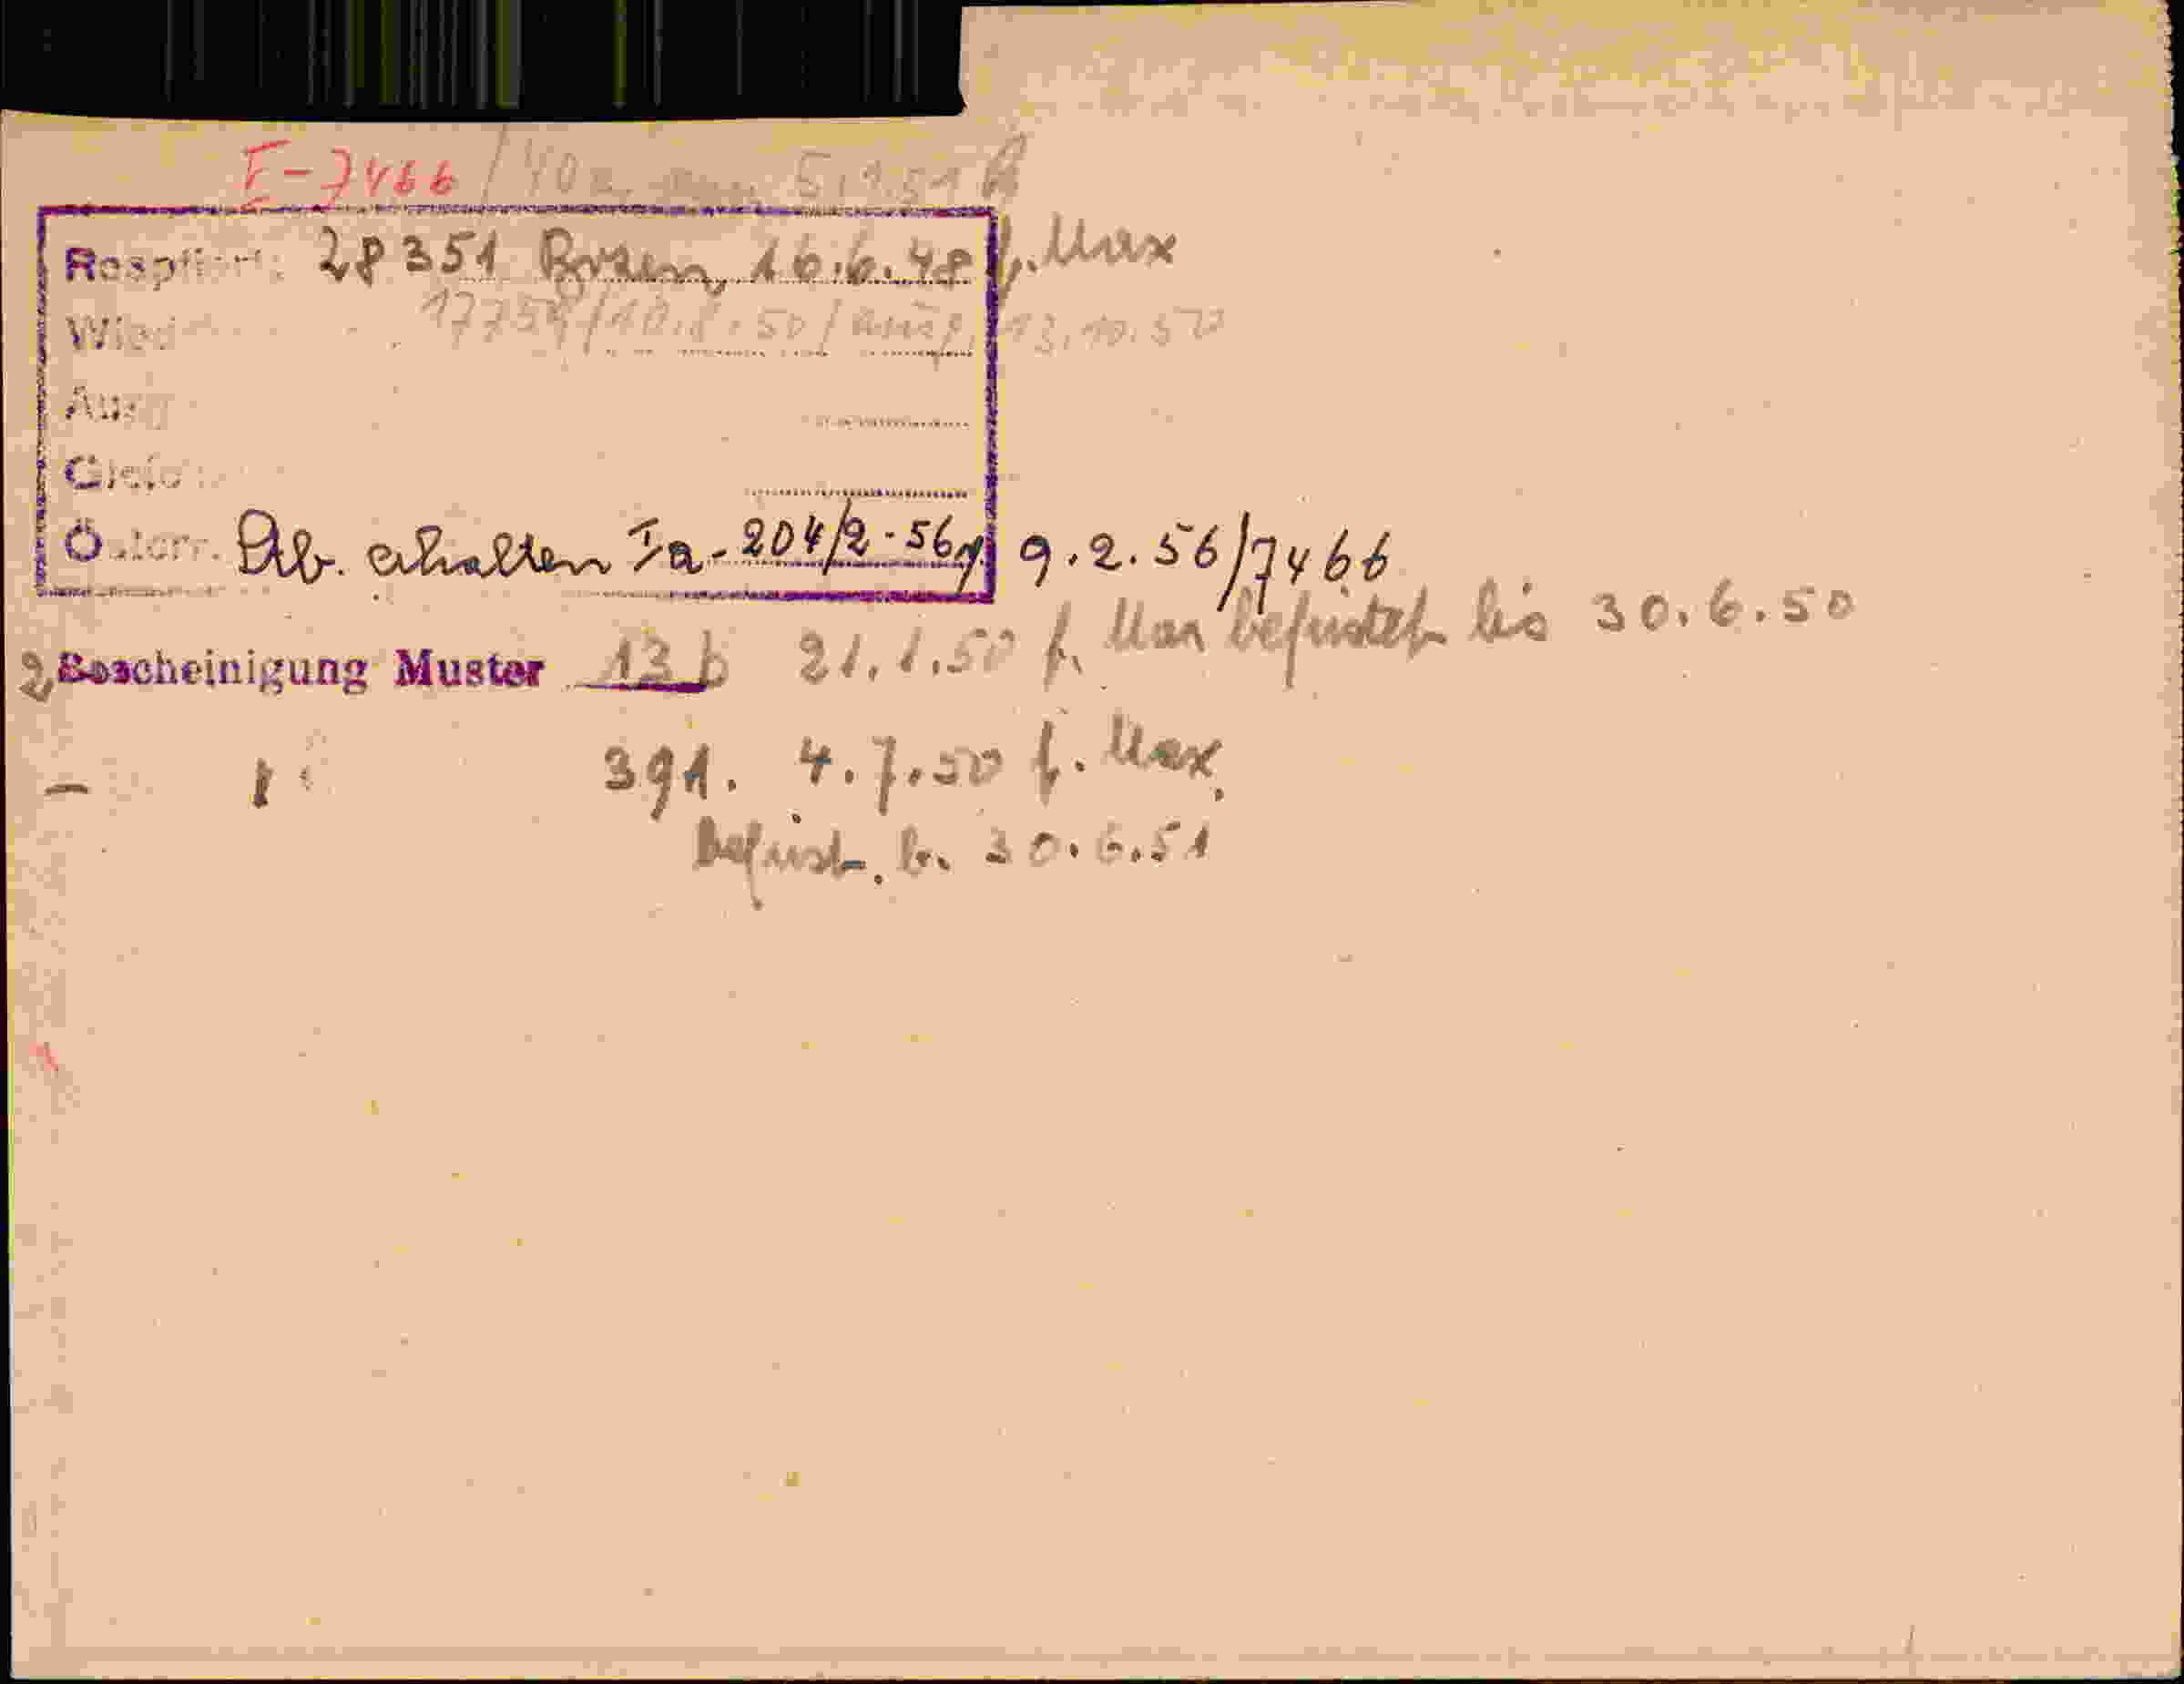 I-7466/40a 5.1.51
Respiiert: 28351 Bozen, 16.6.48 f. Max
Wied 17759/10.8.50/ausg. 13.10.50
Ausg
Gleich
Österr. Stb. erhalten Ia-204/2-56 v. 9.2.56/7466
2 Bescheinigung Muster 13b 21.1.50 f. Max befristet bis 30.6.50
- " 391. 4.7.50 f. Max,
befrist. b. 30.6.51